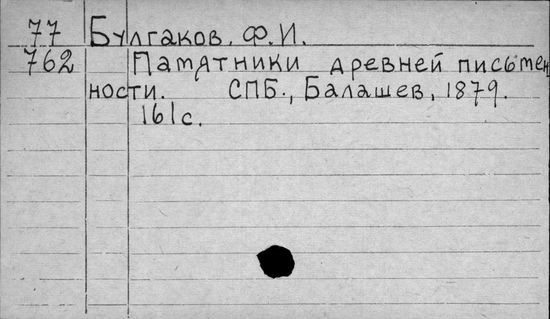 77 Булгаков, Ф.И.
762 Памятники древней письмен
ности. СПБ., Балашев, 1879.
161с.